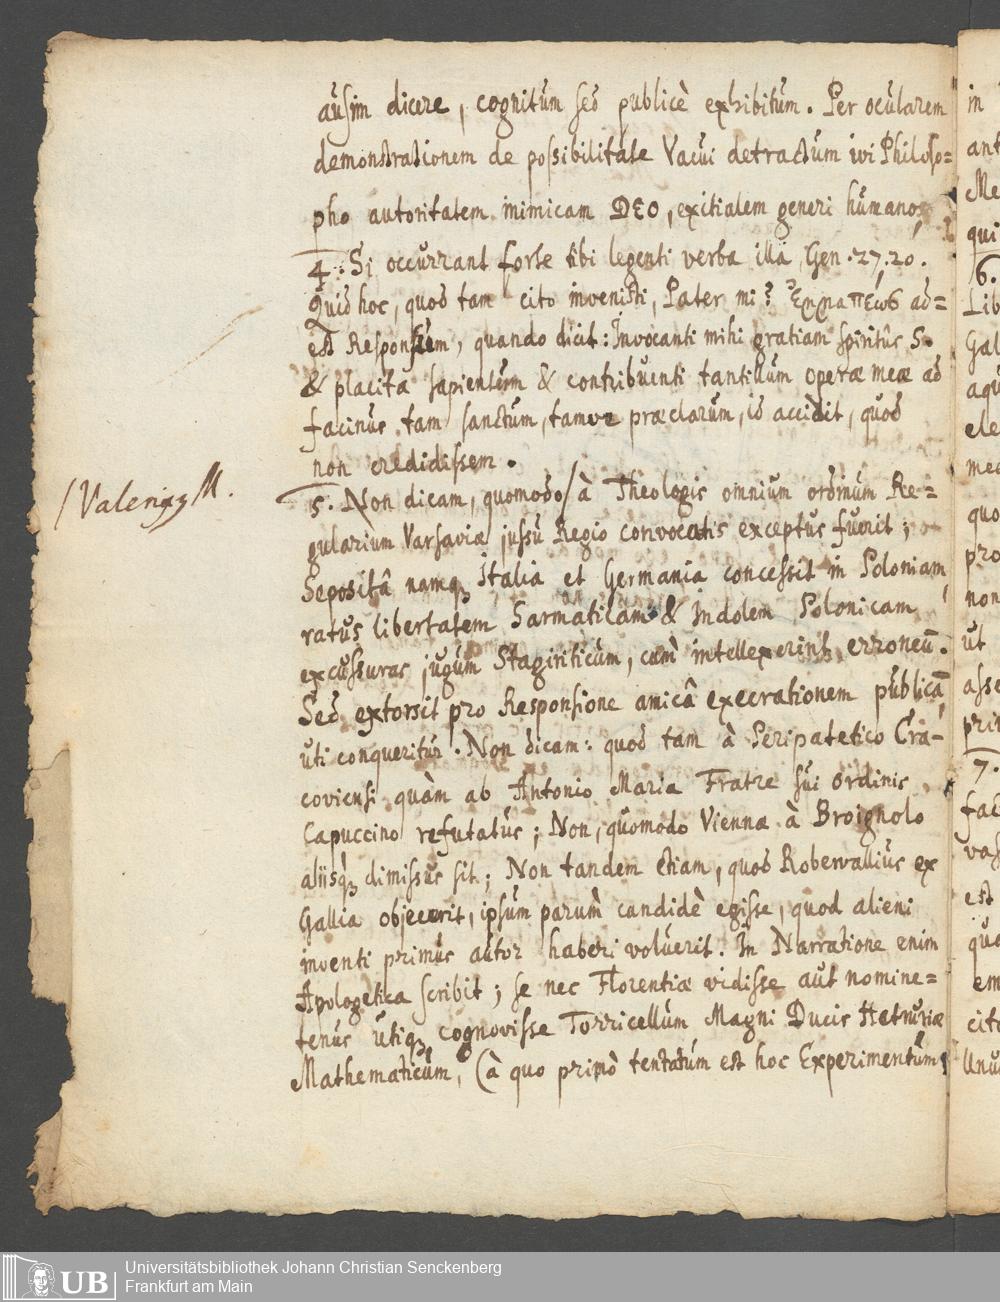 ausim dicere, cognitum sed publicè exhibitum. Per ocularem
demonstrationem de possibilitate Vacui detractum ivi Philoso=
pho autoritatem inimicam DEO, exitialem generi humano.
4. Si occurrant forte tibi legenti verba illa, Gen. 27. 20.
Quid hoc, quod tam cito invenisti, Pater mi? ad=
est Responsum, quando dicit: Invocanti mihi gratiam Spiritûs S.
& placita sapientum & contribuenti tantillum operæ meæ ad
facinus tam sanctum, tamqz præclarum, id accidit, quod
non credidissem.
/Valerianus M.
5. Non dicam, quomodo/ à Theologis omnium ordinum Re=
gularium Varsaviæ jussu Regio convocatis exceptus fuerit;
Sepositâ namqz Italia et Germania concessit in Poloniam
ratus libertatem Sarmaticam & Indolem Polonicam
excussuras jugum Stagiriticum, cum intellexerint erroneū.
Sed extorsit pro Responsione amicâ execrationem publicā,
uti conqueritur. Non dicam: quod tam à Peripatetico Cra-
coviensi quàm ab Antonio Maria Fratre sui ordinis
Capuccino refutatus; Non, quomodo Viennæ à Broignolo
aliisqz dimissus sit; Non tandem etiam, quod Robervallius ex
Gallia objecerit, ipsum parum candidè egisse, quod alieni
inventi primus autor haberi voluerit. In Narratione enim
Apologetica scribit; se nec Florentiæ vidisse aut nomine=
tenus utiqz cognovisse Torricellum Magni Ducis Hetruriæ
Mathematicum, (à quo primò tentatum est hoc Experimentum
in
ant
Me
qui
6.
Lib
Gal
aqu
ele
med
quo
pro
non
ut
asse
prin
7.
fac
vas
est
quo
em
cit
Unu
UB
Universitätsbibliothek Johann Christian Senckenberg
Frankfurt am Main